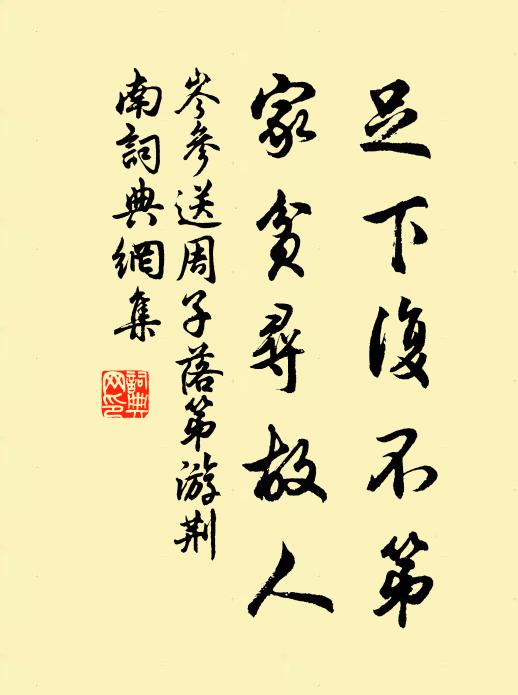 足下復不第
家貧尋故人
岑參送周子落第游荆
南詞典網集
詞典
网印